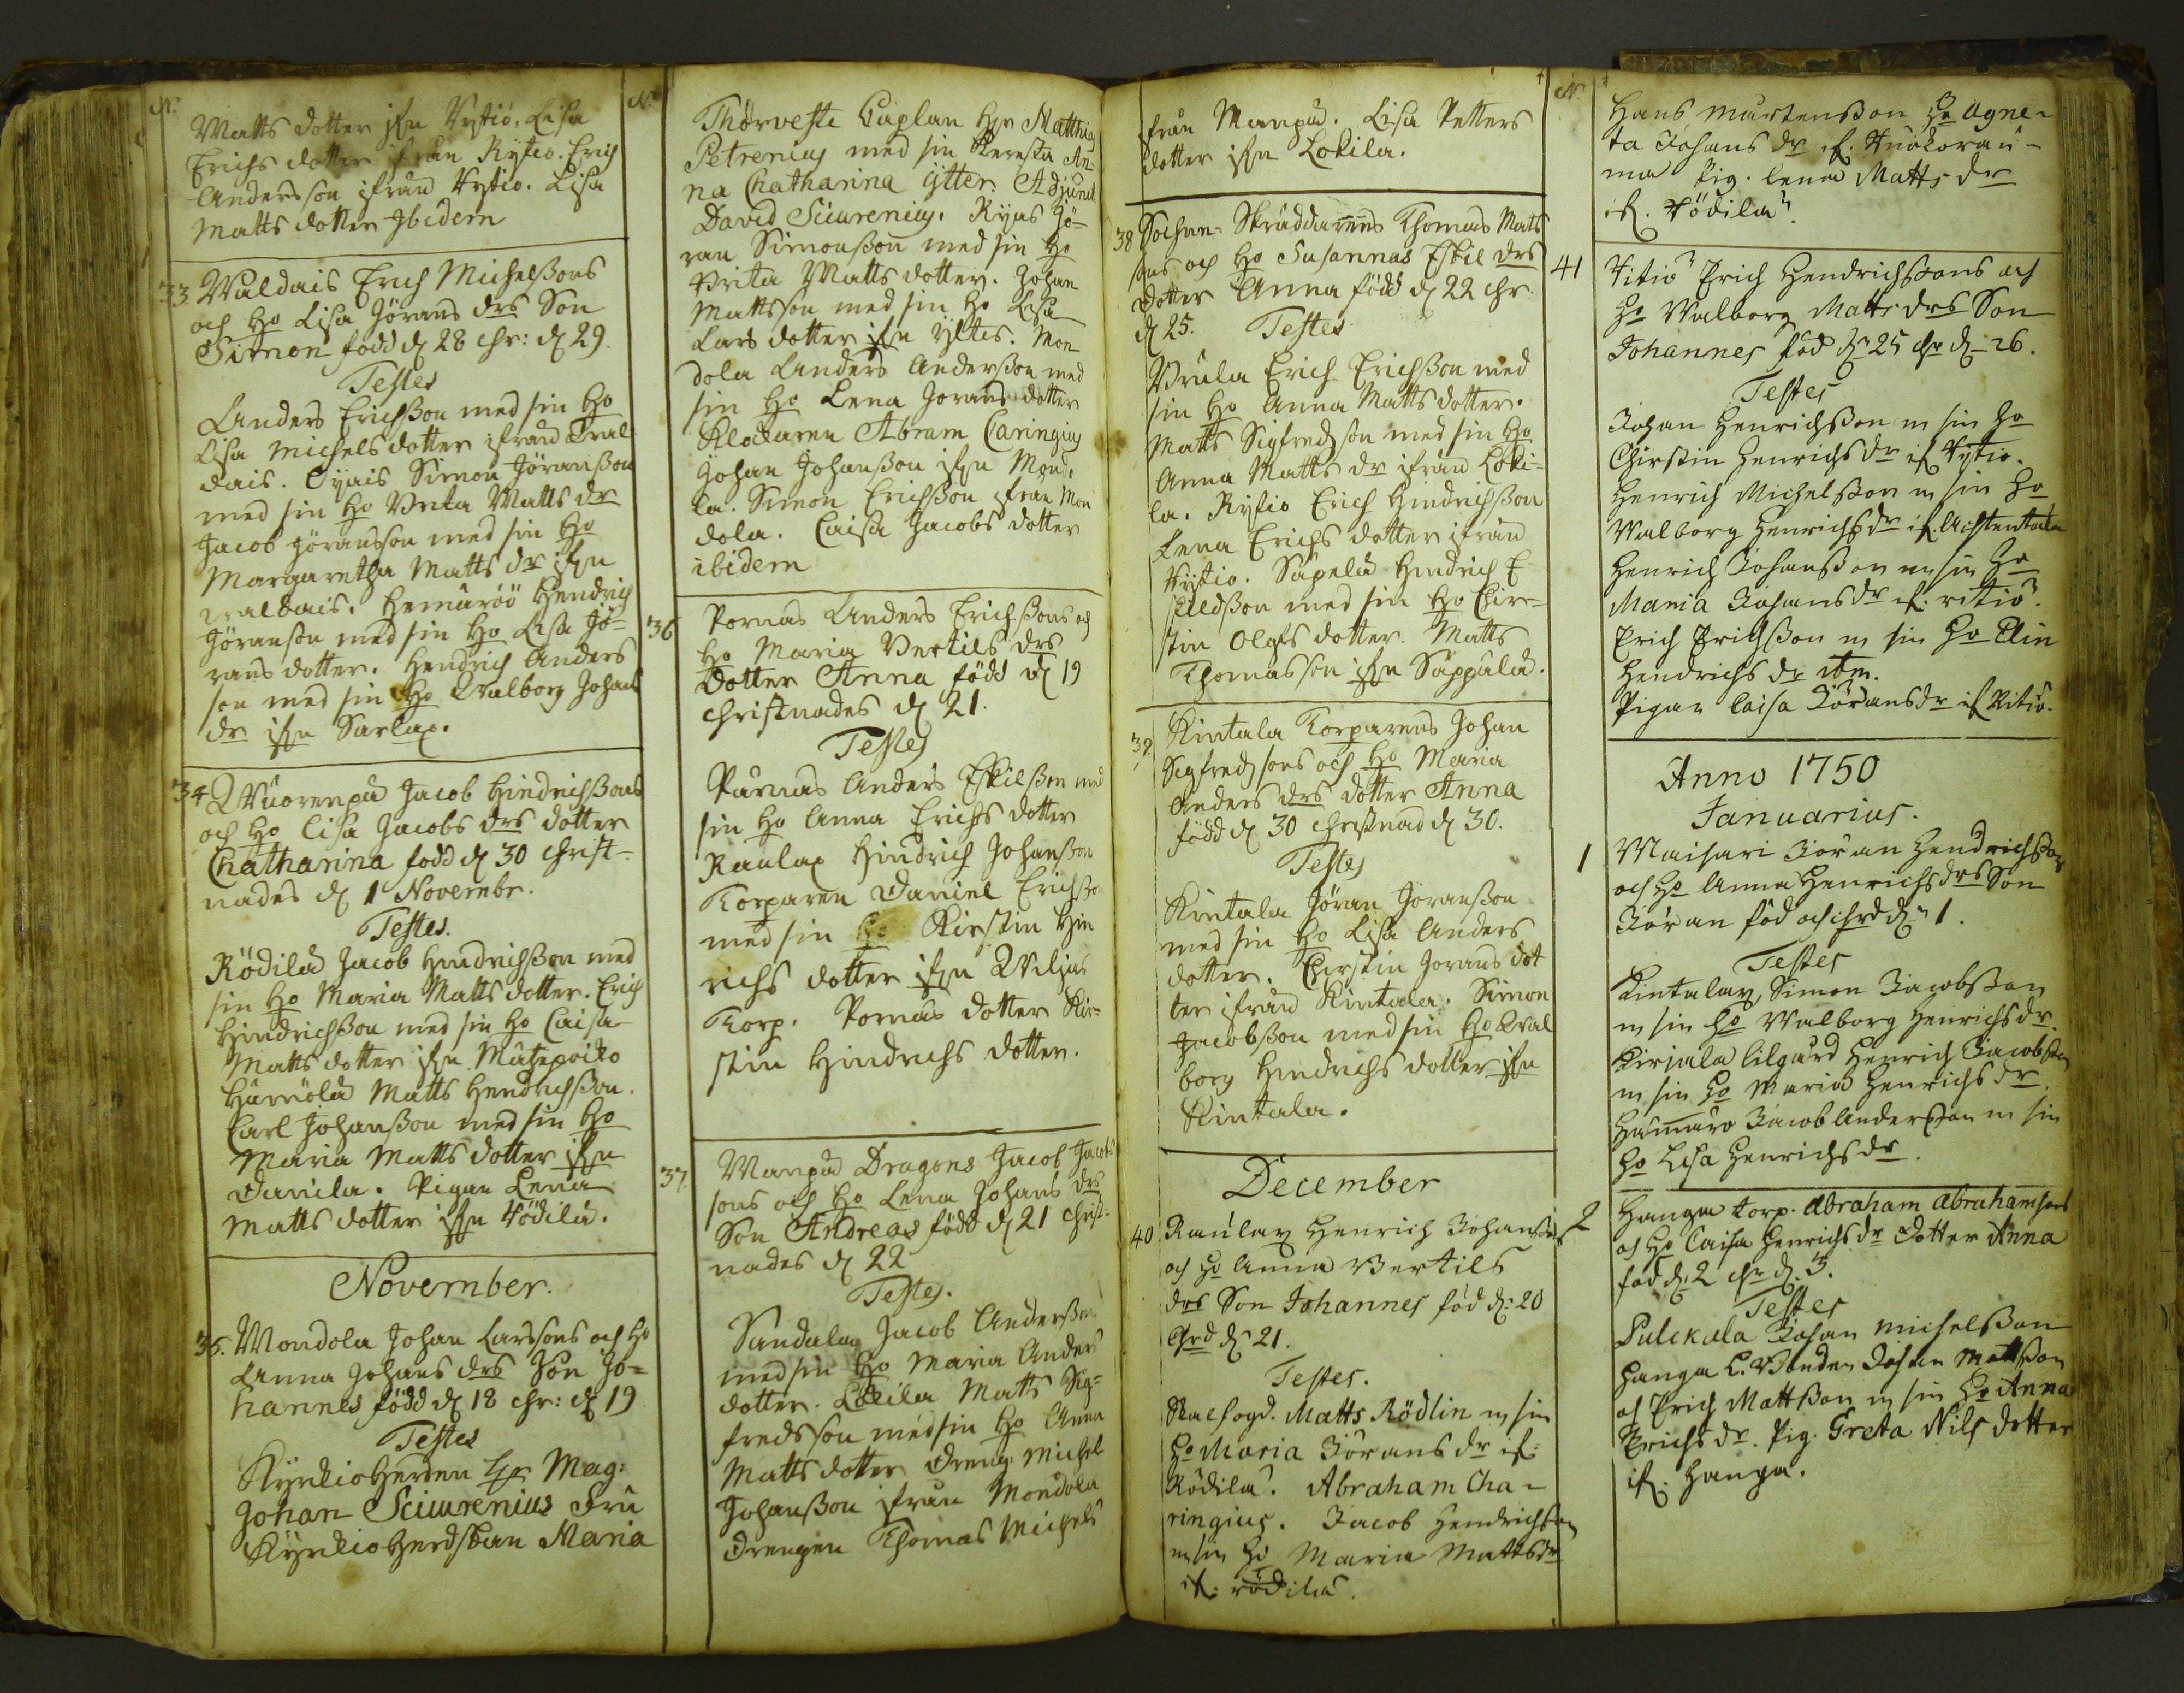 N.
Matts dotter ifrn Vytiö. Lisa
Erichs dotter ifrån Rytio. Erich
Andersson ifrån Vytio. Lisa
Matts dotter Ibidem
33 Waldais Erich Michelssons
och Ho Lisa Görans drs Son
Simon född d 28 chr: d 29.
Testes
Anders Erichsson med sin Ho
Lisa Michels dotter ifrån Wal
dais. Simon Göransson
med sin Ho Brita Matts dr
Jacob Göransson med sin Ho
Margaretha Matts dr ifrn
waldais. Hemäröö Hendrich
Göransson med sin Ho Lisa Gö=
rans dotter. Hendrich Anders
son med sin Ho Walborg Johans
dr ifrn Sarlax.
34 Wuorenpä Jacob Hindrichssons
och Ho Lisa Jacobs drs dotter
Chatharina född d 30 Christ=
nades d 1 Novembr.
Testes.
Rödilä Jacob Hindrichsson med
sin Ho Maria Matts dotter. Erich
Hindrichsson med sin Ho Caisa
Matts dotter ifrn
Matts Hendrichsson.
Carl Johansson med sin Ho
Maria Matts dotter ifrn
Danila. Pigan Lena
Matts dotter ifrn Södilä.
November.
35. Mondola Johan Larssons och Ho
Anna Johans drs Son Jo=
hannes född d 18 chr: d 19
Testes
Kyrkioherden Hr Mag:
Johan Sciurenius Fru
Kyrkioherdskan Maria
N.
Thörveste Caplan Hr Matthias
Petrenius med sin Kereste An=
na Chatharina ytter. Adjunct.
David Sciurenius. Ryas Gö=
ran Simonsson med sin Ho
Brita Matts dotter. Johan
Mattsson med sin Ho Lisa
Lars dotter ifrn yltes. Mon
dola Anders Andersson med
sin Ho Lena Görans dotter
Klockaren Abram Caringius
Johan Johansson ifrn Mondo
la. Simon Erichsson ifrån Mon
dola. Caisa Jacobs dotter
ibidem
36 Pornas Anders Erichssons och
Ho Maria Bertils drs
Dotter Anna född d 19
christnades d 21.
Testes
Pårnas Anders Eskilsson med
sin Ho Anna Erichs dotter
Raulax Hindrich Johansson
Torparen Daniel Erichsson
med sin Ho Kirstin Hin
richs dotter ifrn Wiljas
Torp. Pornas dotter Kir=
stin Hindrichs dotter.
37. Manpä Dragons Jacob Jacobs
sons och Ho Lena Johans drs
Son Andreas född d 21 Christ=
nades d 22
Testes.
Sandalax Jacob Andersson
med sin Ho Maria Anders
dotter. Lokila Matts Sig=
fredsson med sin Ho Anna
Matts dotter Dreng. Michel
Johansson ifrån Mondola
Drengen Thomas Michels
ifrån Manpä. Lisa Petters
dotter ifrn Lokila.
38 Sochne= Skräddarens Thomas Mats
sons och Ho Susannas Eskil drs
Dotter Anna född d 22 chr
d 25. Testes
Urula Erich Erichsson med
sin Ho Anna Matts dotter.
Matts Sigfredsson med sin Ho
Anna Matts dr ifrån Loki=
la. Rytio Erich Hindrichsson
Lena Erichs dotter ifrån
Vytio. Säpelä Hindrich E
skildsson med sin Ho Chir=
stin Olofs dotter. Matts
Thomasson ifrn Säppälä.
39 Kintala Torparens Johan
Sigfredsons och Ho Maria
Anders drs dotter Anna
född d 30 christnad d 30.
Testes
Kintala Göran Göransson
med sin Ho Lisa Anders
dotter. Chirstin Görans dot
ter ifrån Kintala. Simon
Jacobsson med sin Ho Wal
borg Hindrichs dotter ifrn
Kintala.
December
40 Raulax Henrich Johanssons
och Ho Anna Bertils
drs Son Johannes föd d: 20
Chrd d: 21.
Testes.
Matts Rödlin m sin
Ho Maria Jörans dr if:
Rödila. Abraham Cha=
ringius. Jacob Hendrichsson
m sin Ho Maria Mattsdr
if: rödila.
N.
Hans Mårtensson Ho Agne=
ta Johans dr if.
ma Pig. Lena Matts dr
if. Södila.
41 Vitiö Erich Hendrichssons och
Ho Walborg Matts drs Son
Johannes föd d. 25 chr d. 26.
Testes
Johan Henrichsson m sin Ho
Chirstin Henrichs dr if Vytio.
Henrich Michelsson m sin Ho
Walborg Henrichs dr if.
Henrich Johansson m sin Ho
Maria Johans dr if. vitiö.
Erich Erichsson m sin Ho Elin
Hendrichs dr ibm.
Pigan Caisa Jöransdr if Vitiö.
Anno 1750
Januarius.
1 Maisari Jöran Hendrichssons
och Ho Anna Henrichs drs Son
Jöran föd och chrd d. 1.
Testes
Kintalax, Simon Jacobsson
m sin Ho Walborg Henrichs dr.
Kirjala lilgård Henrich Jacobsson
m sin Ho Maria Henrichs dr.
Hämmärö Jacob Andersson m sin
Ho Lisa Henrichs dr.
2 Hanga torp. Abraham Abrahamsons
och Ho Caisa Henrichs dr Dotter Anna
född d. 2 chr d. 3.
Testes
Pulckala Johan Michelsson
Hanga Johan Mattsson
och Erich Mattsson m sin Ho Anna
Erichs dr. Pig. Greta Nils dotter
if. Hanga.